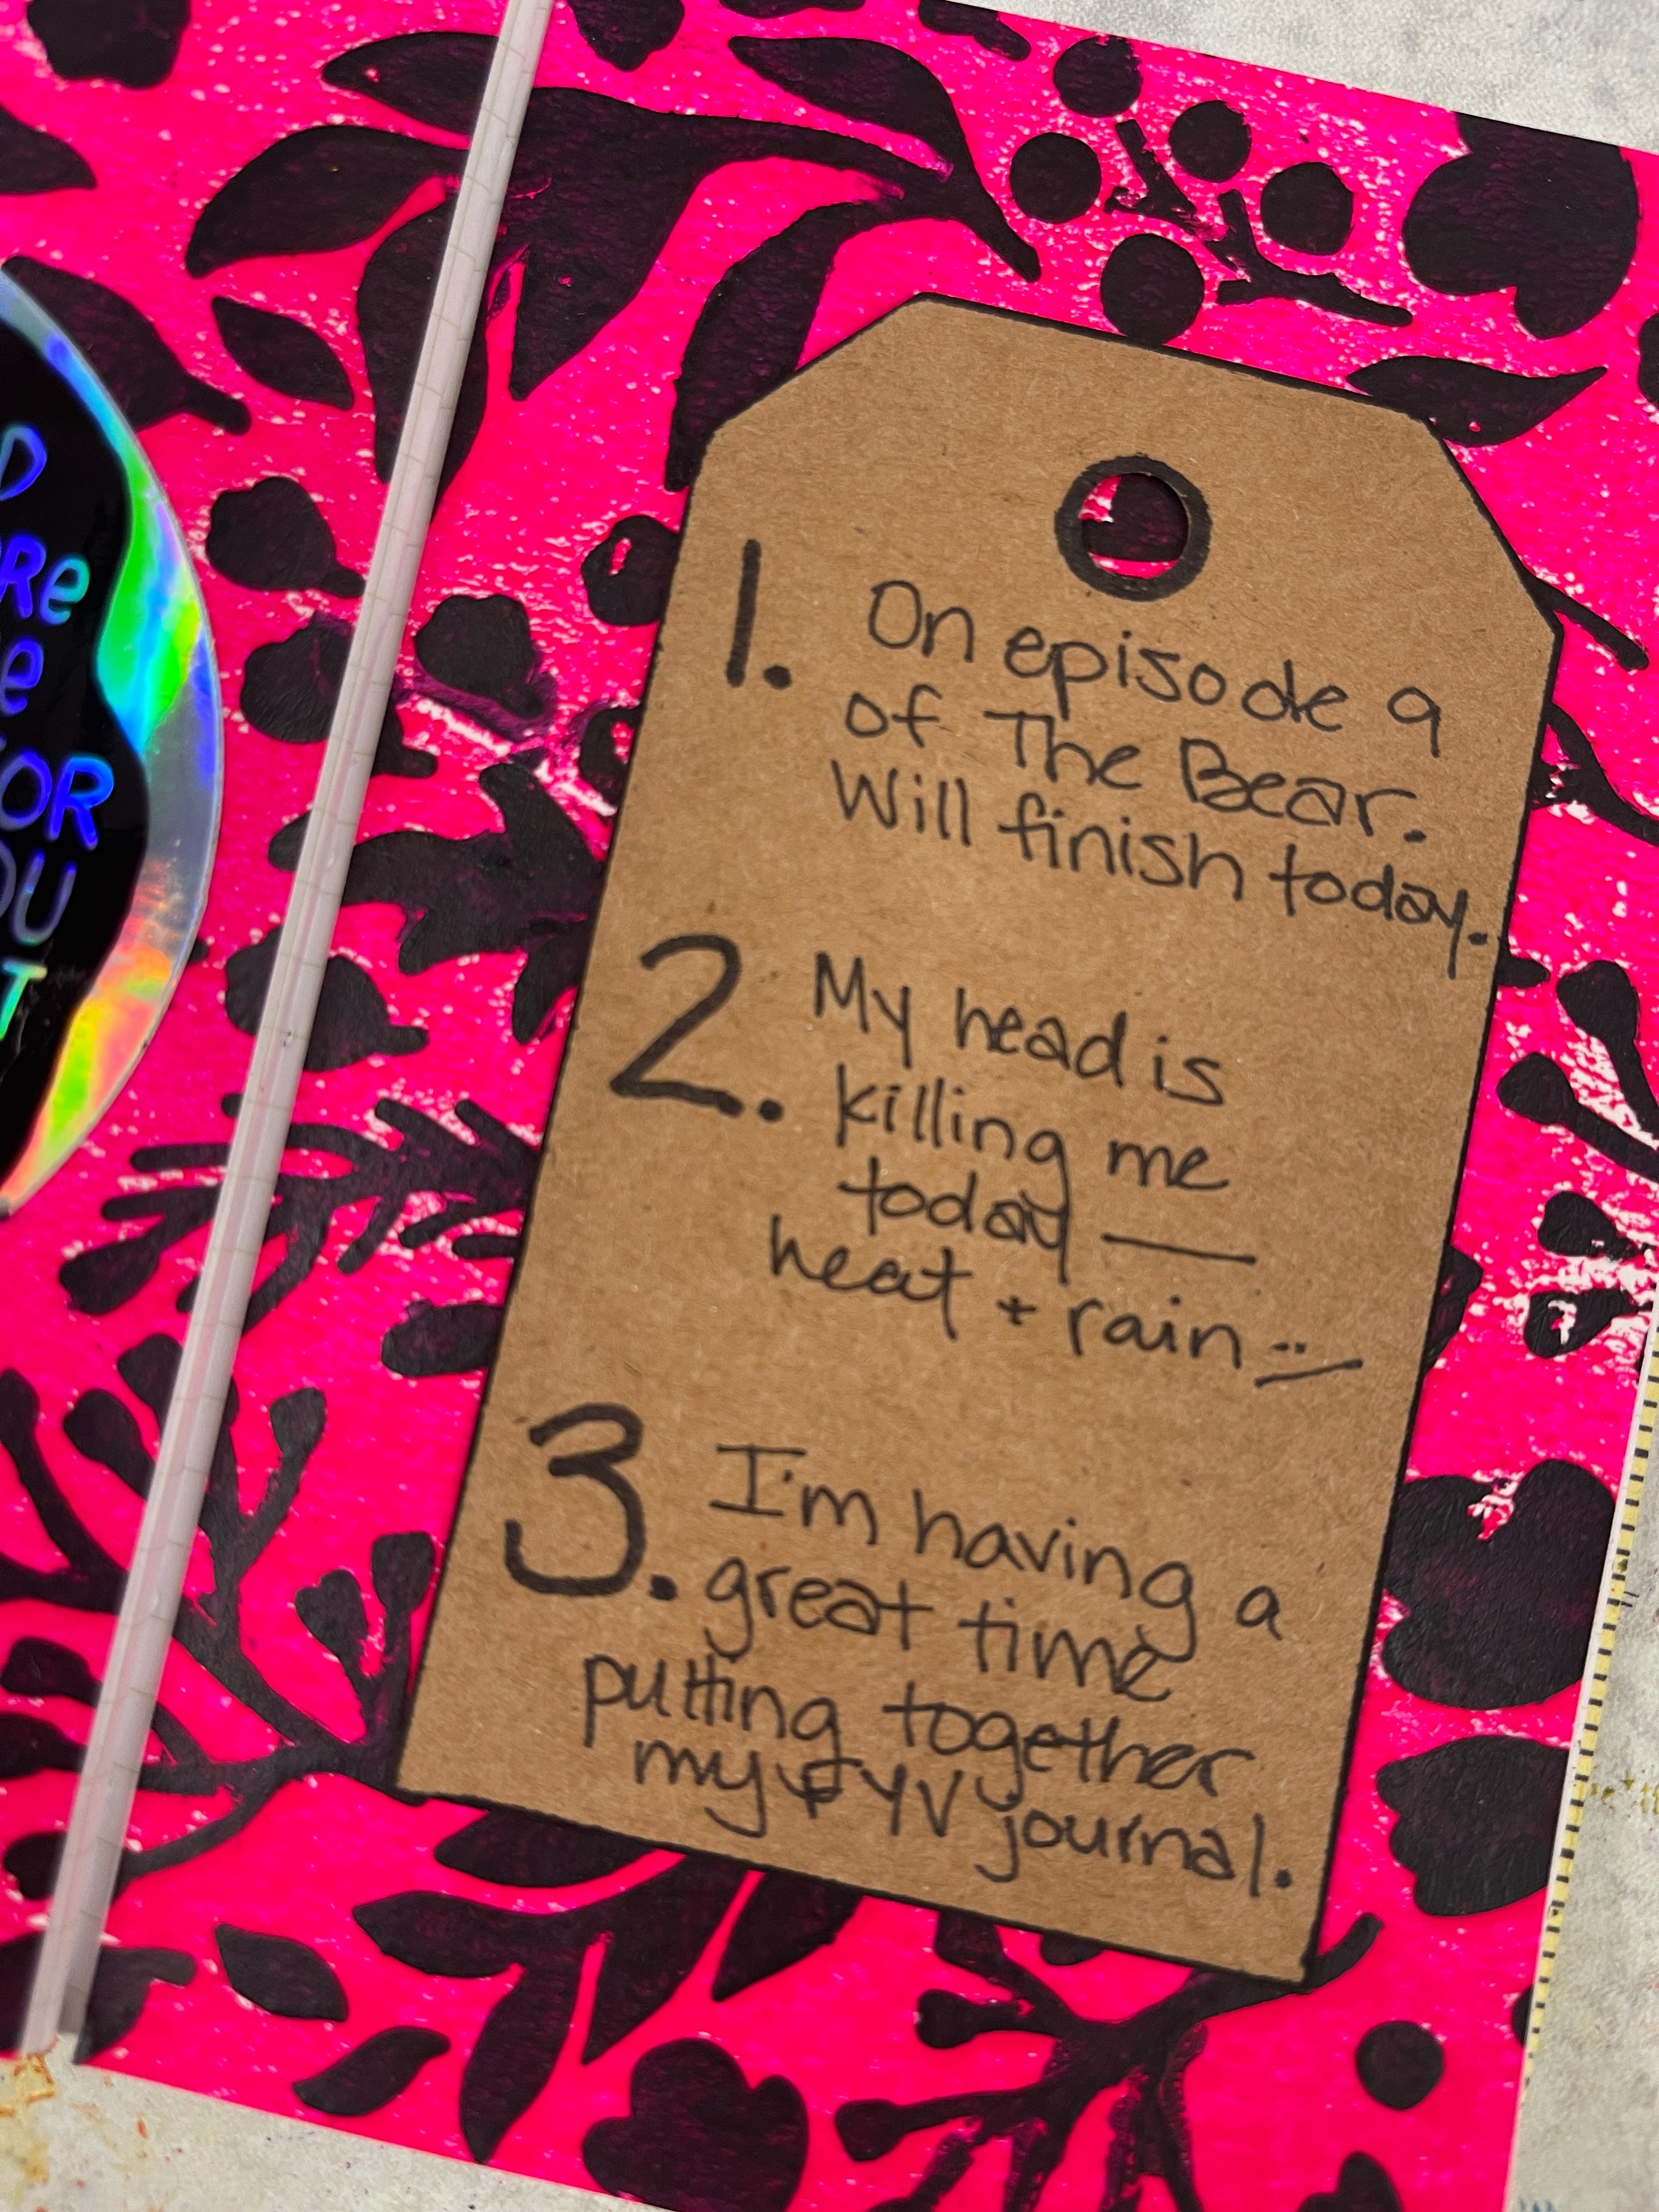 RE
OR
OU
T
1. On episode 9
of The Bear.
Will finish today.
2. My head is
killing me
today —
heat + rain
3. I'm having a
great time
putting together
my FYV journal.